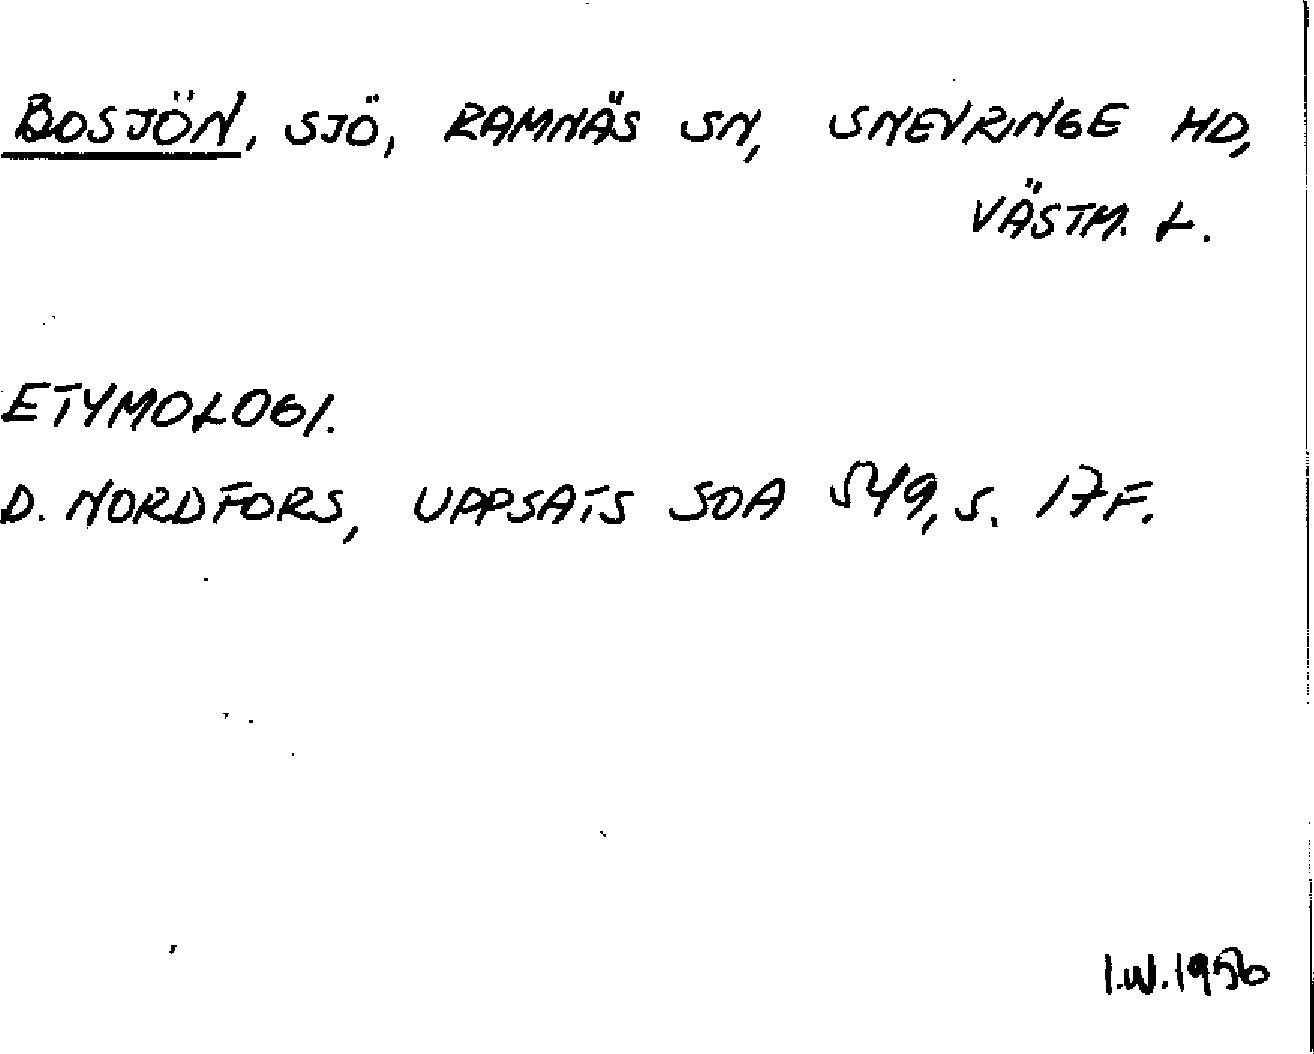 BOSJÖN, SJÖ, RAMNÄS SN, SNEVRINGE HD,
VÄSTM. L.
ETYMOLOGI.
D. NORDFORS, UPPSATS SOA 549, S. 17F.
I.W. 1956